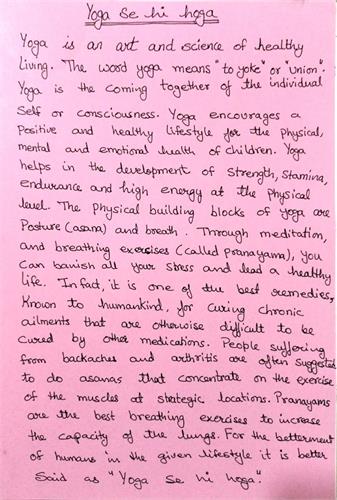 Yoga se hi hoga
Yoga is an art and science of healthy
living. The word yoga means "to yoke" or "union".
Yoga is the coming together of the individual
self or consciousness. Yoga encourages a
positive and healthy lifestyle for the physical,
mental and emotional health of children. Yoga
helps in the development of strength, stamina,
endurance and high energy at the physical
level. The physical building blocks of yoga are
Posture (asana) and breath. Through meditation,
and breathing exercises (called pranayama), you
can banish all your stress and lead a healthy
life. Infact, it is one of the best remedies,
known to humankind, for curing chronic
ailments that are otherwise difficult to be
cured by other medications. People suffering
from backaches and arthritis are often suggested
to do asanas that concentrate on the exercise
of the muscles at strategic locations. Pranayams
are the best breathing exercises to increase
the capacity of the lungs. For the betterment
of humans in the given lifestyle it is better
said as "Yoga se hi hoga."